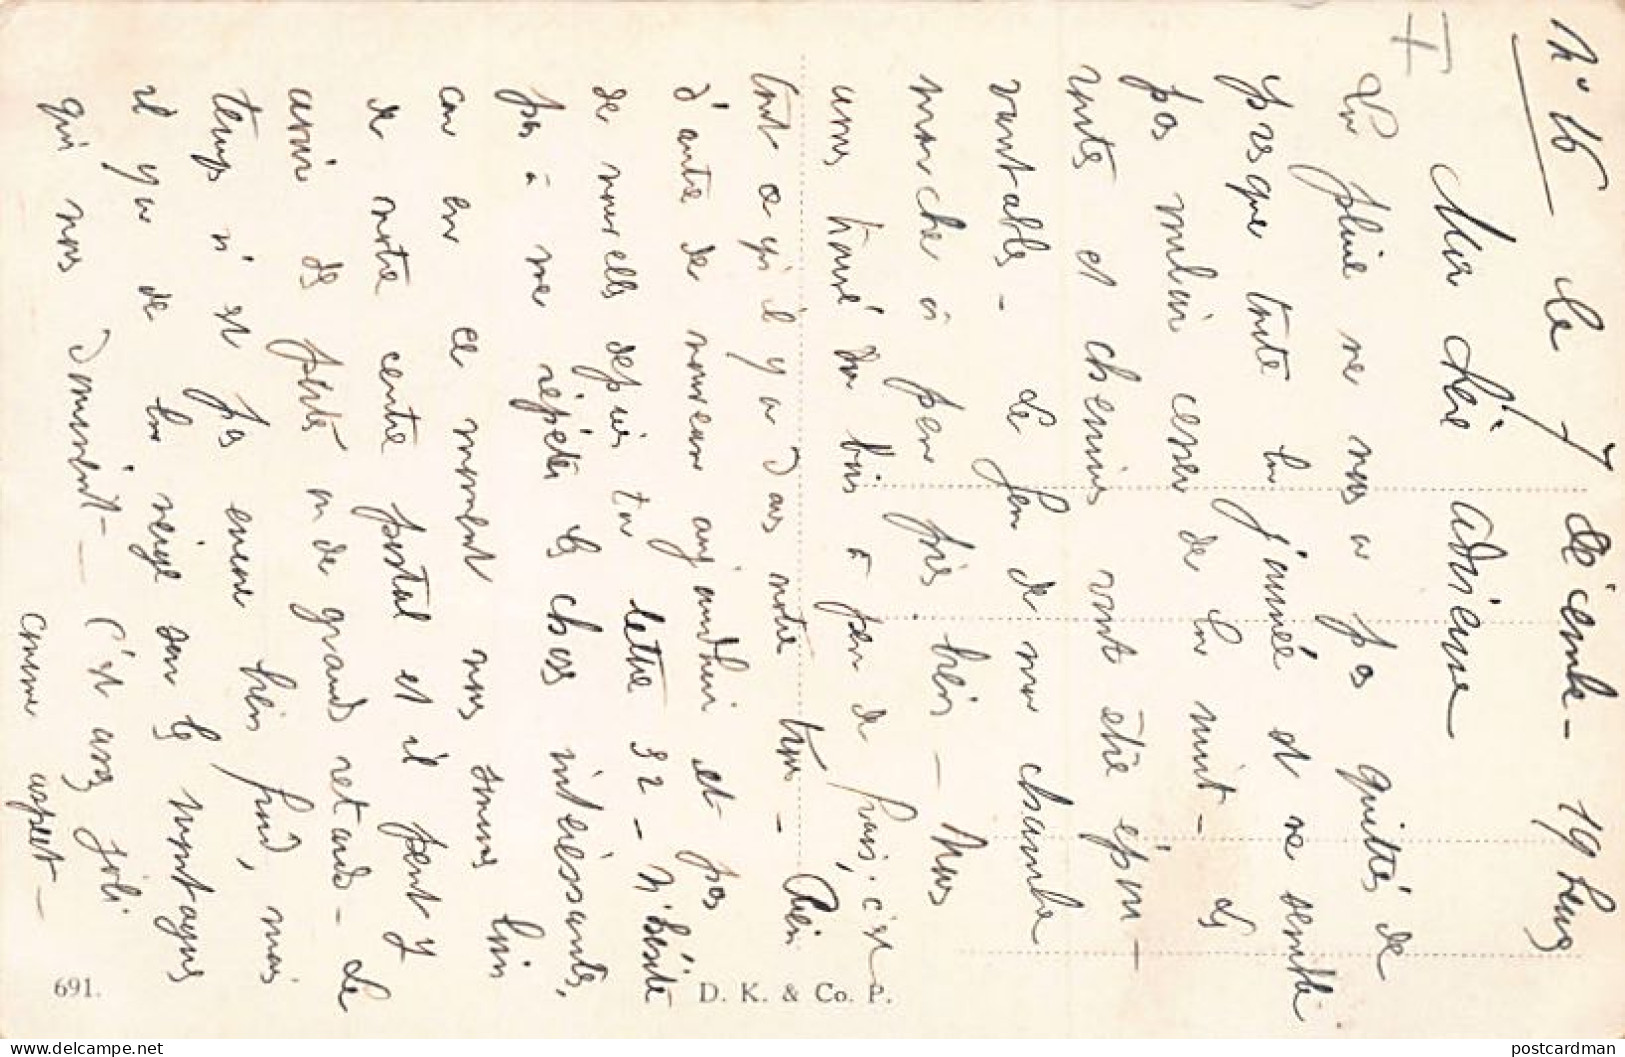 N° 16 le 7 décemb- 19 heures
Ma chère Adrienne
La pluie ne nous a pas quittés de
presque toute la journée et ne semble
pas vouloir cesser de la nuit - Les
routes et chemins vont être épou-
vantables - Le feu de ma chambre
marche à peu près bien - Nous
avons trouvé du bois à peu de frais, c'est
tout ce qu'il y a dans notre trou - Rien
d'autre de nouveau aujourd'hui et pas
de nouvelles depuis ta lettre 32 - N'hésite
pas à me répéter les choses intéressantes,
car en ce moment nous sommes loin
de notre centre postal et il peut y
avoir des pertes ou de grands retards - Le
temps n'est pas encore très froid, mais
il y a de la neige sur les montagnes
qui nous dominent - C'est assez joli
comme aspect -
691.
D. K. & Co. P.
postcardman